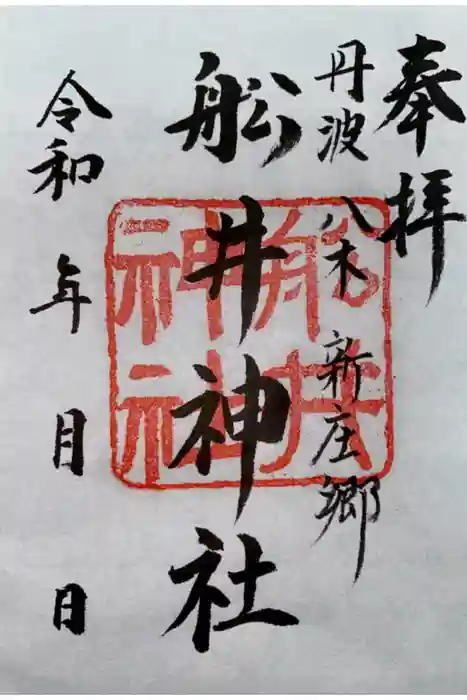 奉拝
丹波 八木 新庄郷
舩井神社
舩井
神社
令和 年 月 日